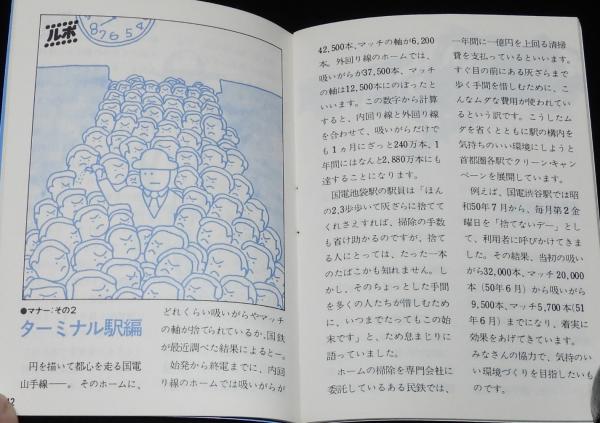 ルポ
8 7 6 5 4
●マナー：その2
ターミナル駅編
円を描いて都心を走る国電
山手線──。そのホームに、
どれくらい吸いがらやマッチ
の軸が捨てられているか、国鉄
が最近調べた結果によると─。
始発から終電までに、内回
り線のホームでは吸いがらが
12
42,500本、マッチの軸が6,200
本。外回り線のホームでは、
吸いがらが37,500本、マッチ
の軸は12,500本にのぼったと
いいます。この数字から計算
すると、内回り線と外回り線
を合わせて、吸いがらだけで
も1ヵ月にざっと240万本、1
年間にはなんと2,880万本にも
達することになります。
国電池袋駅の駅員は「ほん
の2,3歩歩いて灰ざらに捨てて
くれさえすれば、掃除の手数
も省け助かるのですが、捨て
る人にとっては、たった一本
のたばこかも知れません。し
かし、そのちょっとした手間
を多くの人たちが惜しむため
に、いつまでたってもこの始
末です」と、ため息まじりに
語っていました。
ホームの掃除を専門会社に
委託しているある民鉄では、
一年間に一億円を上回る清掃
費を支払っているといいます。
すぐ目の前にある灰ざらまで
歩く手間を惜しむために、こ
んなムダな費用が使われてい
るという訳です。こうしたム
ダを省くとともに駅の構内を
気持ちのいい環境にしようと
首都圏各駅でクリーン・キャン
ペーンを展開しています。
例えば、国電渋谷駅では昭
和50年7月から、毎月第2金
曜日を「捨てないデー」とし
て、利用者に呼びかけてきま
した。その結果、当初の吸い
がら32,000本、マッチ20,000
本（50年6月）から吸いがら
9,500本、マッチ5,700本(51
年6月）までになり、着実に
効果をあげてきています。
みなさんの協力で、気持のい
い環境づくりを目指したいも
のです。